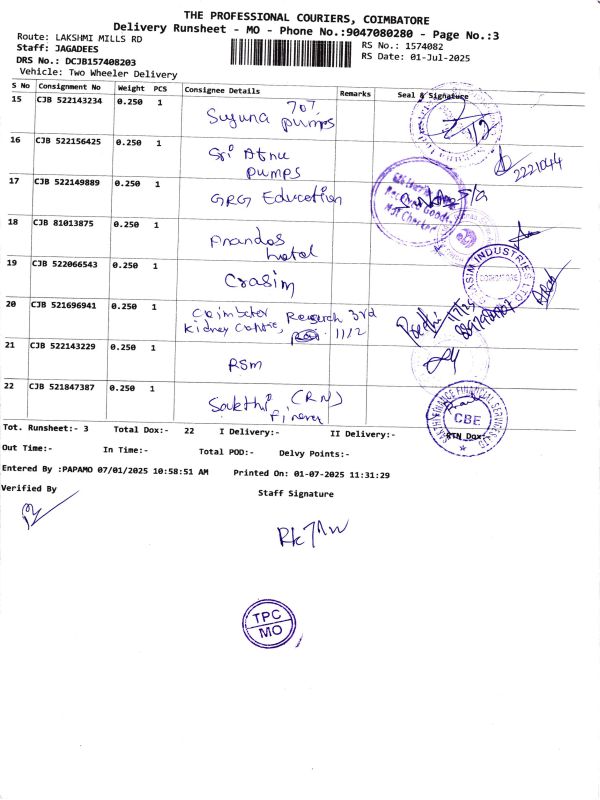 THE PROFESSIONAL COURIERS, COIMBATORE
Delivery Runsheet - MO - Phone No.:9047080280 - Page No.:3
Route: LAKSHMI MILLS RD
RS No.: 1574082
Staff: JAGADEES
RS Date: 01-Jul-2025
DRS No.: DCJB157408203
Vehicle: Two Wheeler Delivery
S No Consignment No Weight PCS Consignee Details Remarks Seal & Signature
15 CJB 522143234 0.250 1 Suguna pumps 707
16 CJB 522156425 0.250 1 Sri Atnu pumps
2221044
17 CJB 522149889 0.250 1 GRG Education
18 CJB 81013875 0.250 1 hotel
19 CJB 522066543 0.250 1 Grasim
GRASIM INDUSTRIES LTD
COIMBATORE
20 CJB 521696941 0.250 1 Research 3rd
Kidney Centre, 11/2
21 CJB 522143229 0.250 1 RSM
22 CJB 521847387 0.250 1 Sakthi (RN)
SAKTHI FINANCE FINANCIAL SERVICES LTD
CBE
Tot. Runsheet:- 3 Total Dox:- 22 I Delivery:- II Delivery:- RTN Dox:-
Out Time:- In Time:- Total POD:- Delvy Points:-
Entered By :PAPAMO 07/01/2025 10:58:51 AM Printed On: 01-07-2025 11:31:29
Verified By
Staff Signature
TPC
MO